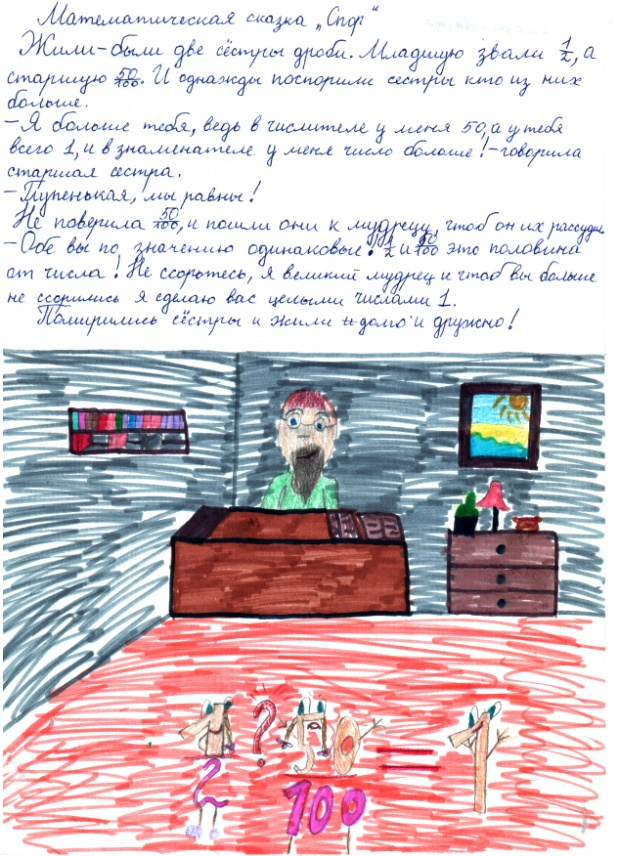 Математическая сказка „Спор"
Жили-были две сёстры дроби. Младшую звали 1/2, а
старшую 50/100. И однажды поспорили сестры кто из них
больше.
-Я больше тебя, ведь в числителе у меня 50, а у тебя
всего 1, и в знаменателе у меня число больше!-говорила
старшая сестра.
-Глупенькая, мы равны!
Не поверила 50/100, и пошли они к мудрецу, чтоб он их рассудил
-Обе вы по значению одинаковые! 1/2 и 50/100 это половина
от числа! Не ссорьтесь, я великий мудрец и чтоб вы больше
не ссорились я сделаю вас целыми числами 1.
Помирились сёстры и жили долго и дружно!
1 ? 50 = 1
2 100